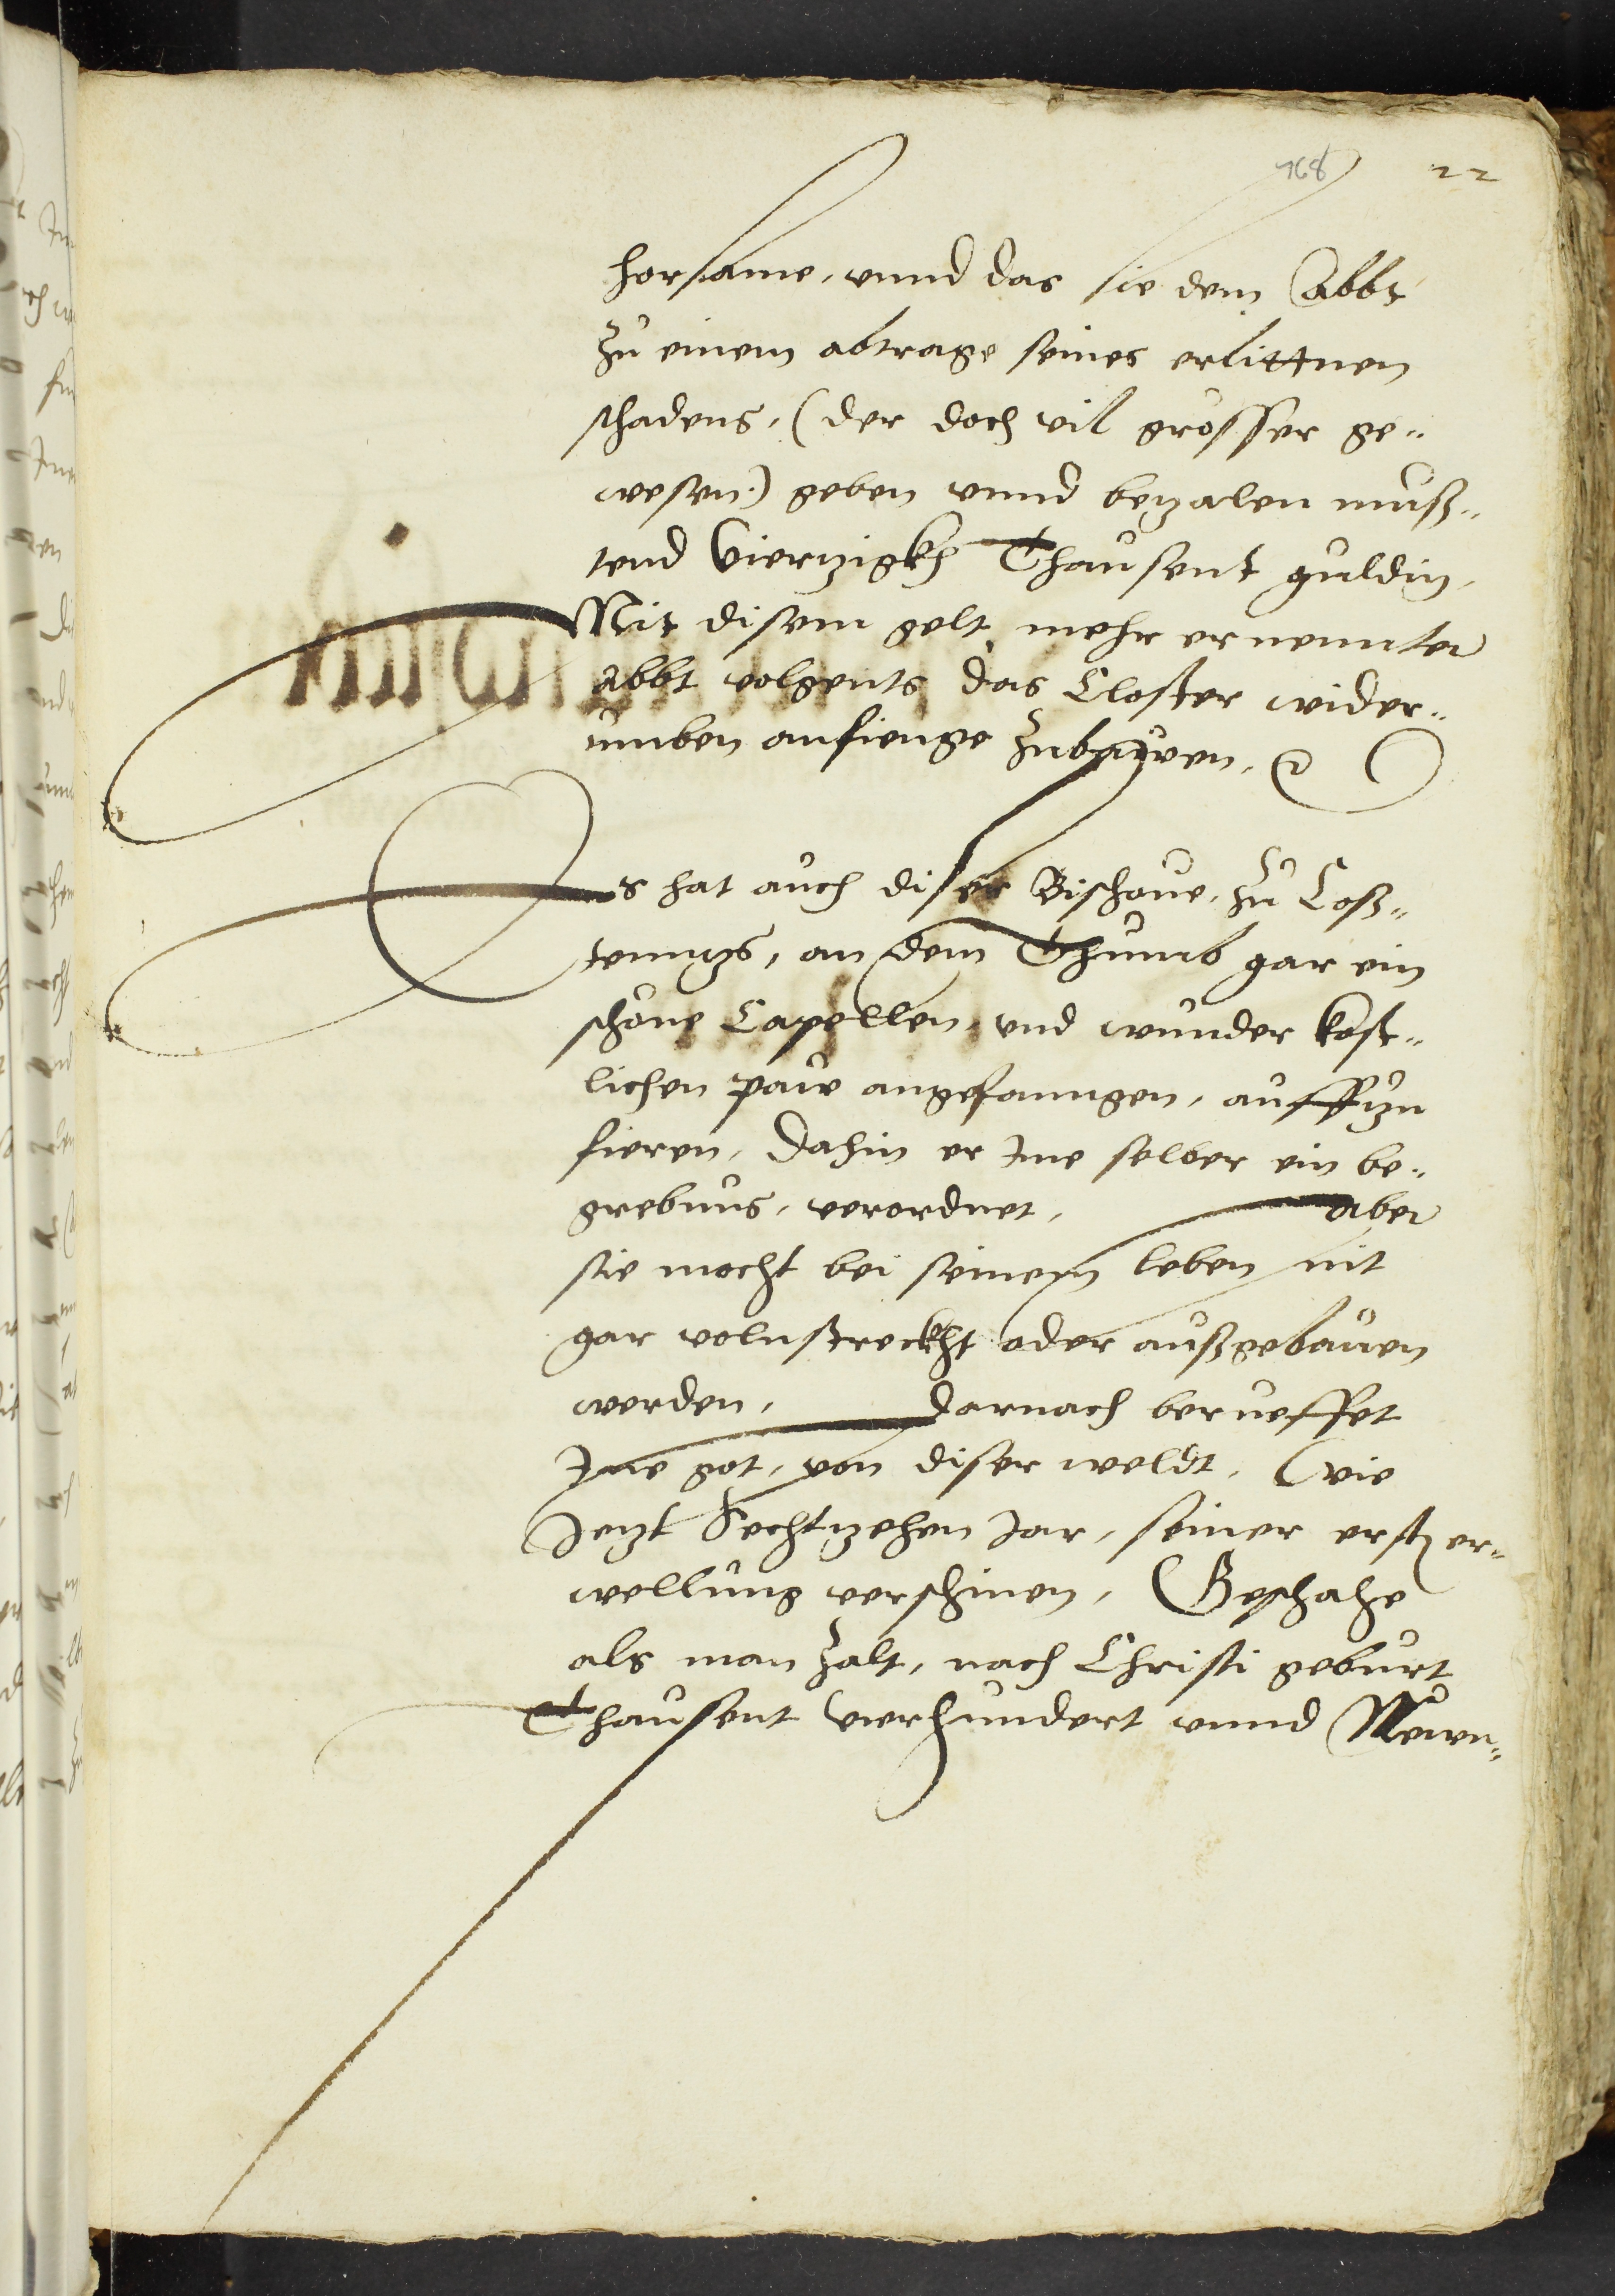 768 22
horsame, vnnd das sie dem Abbt
zu einem abtrage seines erlittnen
schadens, (der doch vil grosser ge-
wesen:) geben vnnd bezalen muß-
tend Vierzigkh Thausent guldin,
Mit disem gelt mehr ernennter
Abbt volgents das Closter wider-
umben anfienge zubawen, (2)
Es hat auch diser Bischoue, zu Coß-
tenntzs, an dem Thumb gar ein
schöne Capellen, vnd wunder kost-
lichen paw angefanngen, auffzu
fieren, Dahin er Ime selber ein be-
grebnus, verordnet, Aber
sie mocht bei seinem leben nit
gar volnstreckht oder außgebauen
werden, Darnach berueffet
Ine got, von diser weldt, Wie
Jezt Sechtzehen Jar, seiner erst er-
wellung verschinen, Geschahe
als man zalt, nach Christi geburt
Thausent vierhundert vnnd Newn-